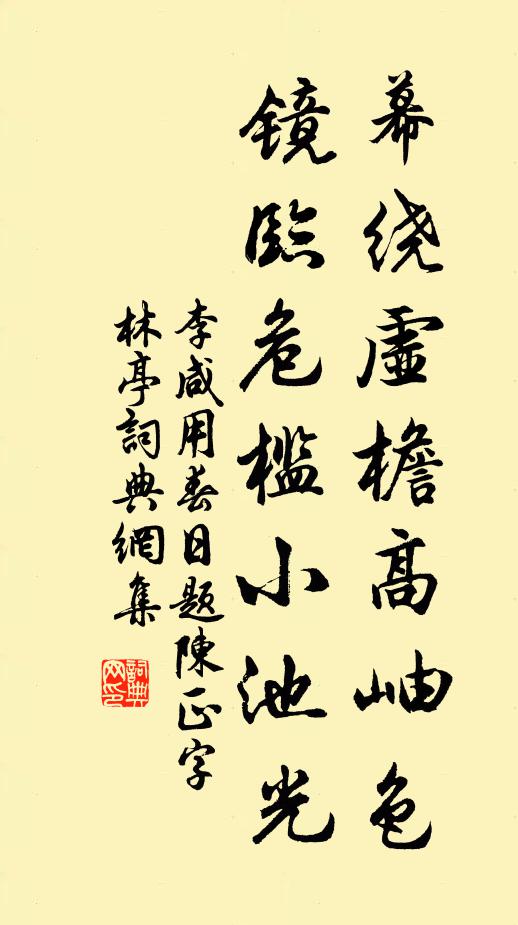 幕绕虚檐高岫色
镜臨危槛小池光
李咸用春日题陳正字
林亭詞典網集
詞典网印